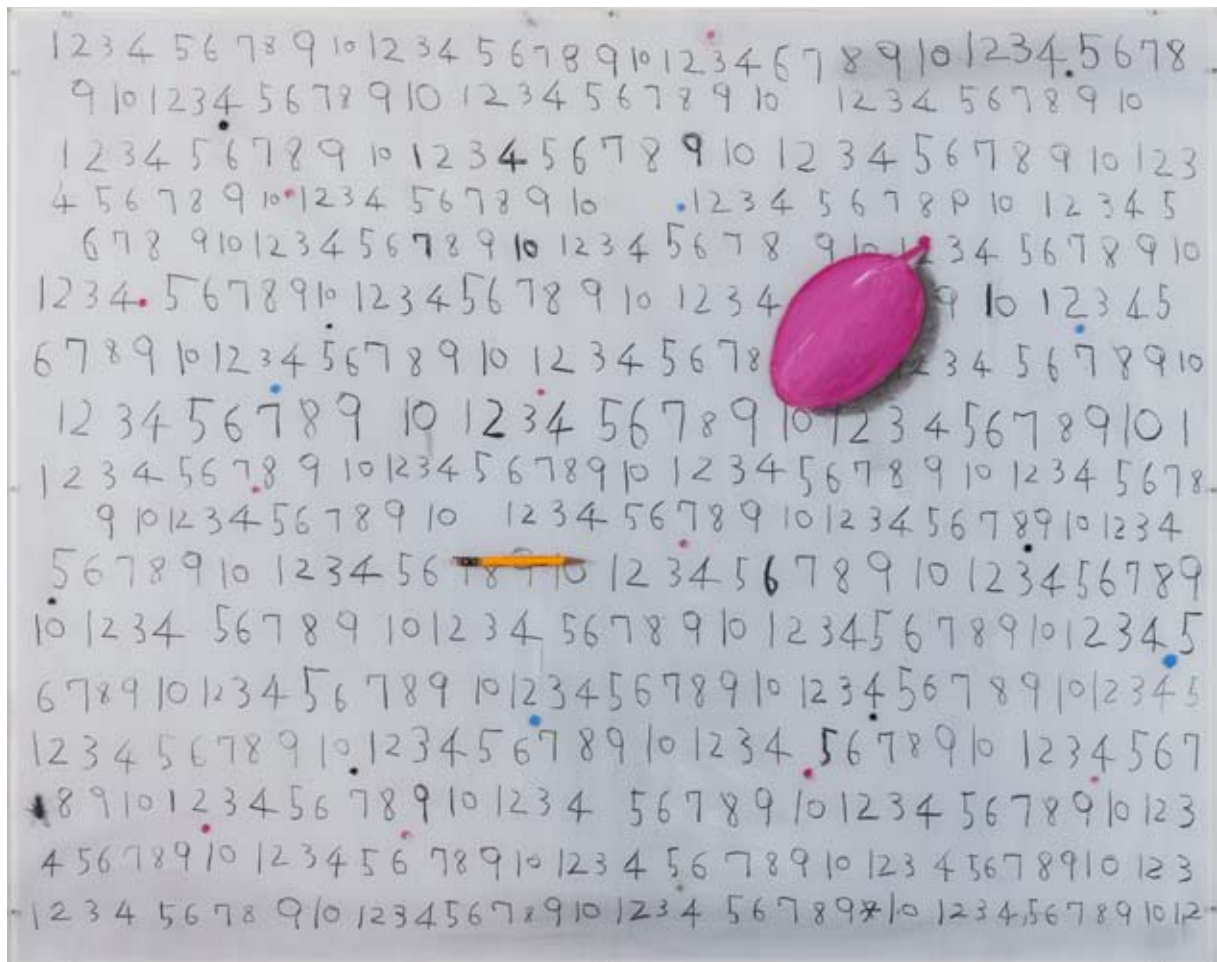 1 2 3 4 5 6 7 8 9 10 1 2 3 4 5 6 7 8 9 10 1 2 3 4 6 7 8 9 10 1 2 3 4 5 6 7 8
9 10 1 2 3 4 5 6 7 8 9 10 1 2 3 4 5 6 7 8 9 10 1 2 3 4 5 6 7 8 9 10
1 2 3 4 5 6 7 8 9 10 1 2 3 4 5 6 7 8 9 10 1 2 3 4 5 6 7 8 9 10 1 2 3
4 5 6 7 8 9 10 1 2 3 4 5 6 7 8 9 10 1 2 3 4 5 6 7 8 9 10 1 2 3 4 5
6 7 8 9 10 1 2 3 4 5 6 7 8 9 10 1 2 3 4 5 6 7 8 9 10 1 2 3 4 5 6 7 8 9 10
1 2 3 4 5 6 7 8 9 10 1 2 3 4 5 6 7 8 9 10 1 2 3 4 9 10 1 2 3 4 5
6 7 8 9 10 1 2 3 4 5 6 7 8 9 10 1 2 3 4 5 6 7 8 2 3 4 5 6 7 8 9 10
1 2 3 4 5 6 7 8 9 10 1 2 3 4 5 6 7 8 9 10 1 2 3 4 5 6 7 8 9 10 1
1 2 3 4 5 6 7 8 9 10 1 2 3 4 5 6 7 8 9 10 1 2 3 4 5 6 7 8 9 10 1 2 3 4 5 6 7 8
9 10 1 2 3 4 5 6 7 8 9 10 1 2 3 4 5 6 7 8 9 10 1 2 3 4 5 6 7 8 9 10 1 2 3 4
5 6 7 8 9 10 1 2 3 4 5 6 7 8 9 10 1 2 3 4 5 6 7 8 9 10 1 2 3 4 5 6 7 8 9
10 1 2 3 4 5 6 7 8 9 10 1 2 3 4 5 6 7 8 9 10 1 2 3 4 5 6 7 8 9 10 1 2 3 4 5
6 7 8 9 10 1 2 3 4 5 6 7 8 9 10 1 2 3 4 5 6 7 8 9 10 1 2 3 4 5 6 7 8 9 10 1 2 3 4 5
1 2 3 4 5 6 7 8 9 10 1 2 3 4 5 6 7 8 9 10 1 2 3 4 5 6 7 8 9 10 1 2 3 4 5 6 7
8 9 10 1 2 3 4 5 6 7 8 9 10 1 2 3 4 5 6 7 8 9 10 1 2 3 4 5 6 7 8 9 10 1 2 3
4 5 6 7 8 9 10 1 2 3 4 5 6 7 8 9 10 1 2 3 4 5 6 7 8 9 10 1 2 3 4 5 6 7 8 9 10 1 2 3
1 2 3 4 5 6 7 8 9 10 1 2 3 4 5 6 7 8 9 10 1 2 3 4 5 6 7 8 9 * 10 1 2 3 4 5 6 7 8 9 10 1 2